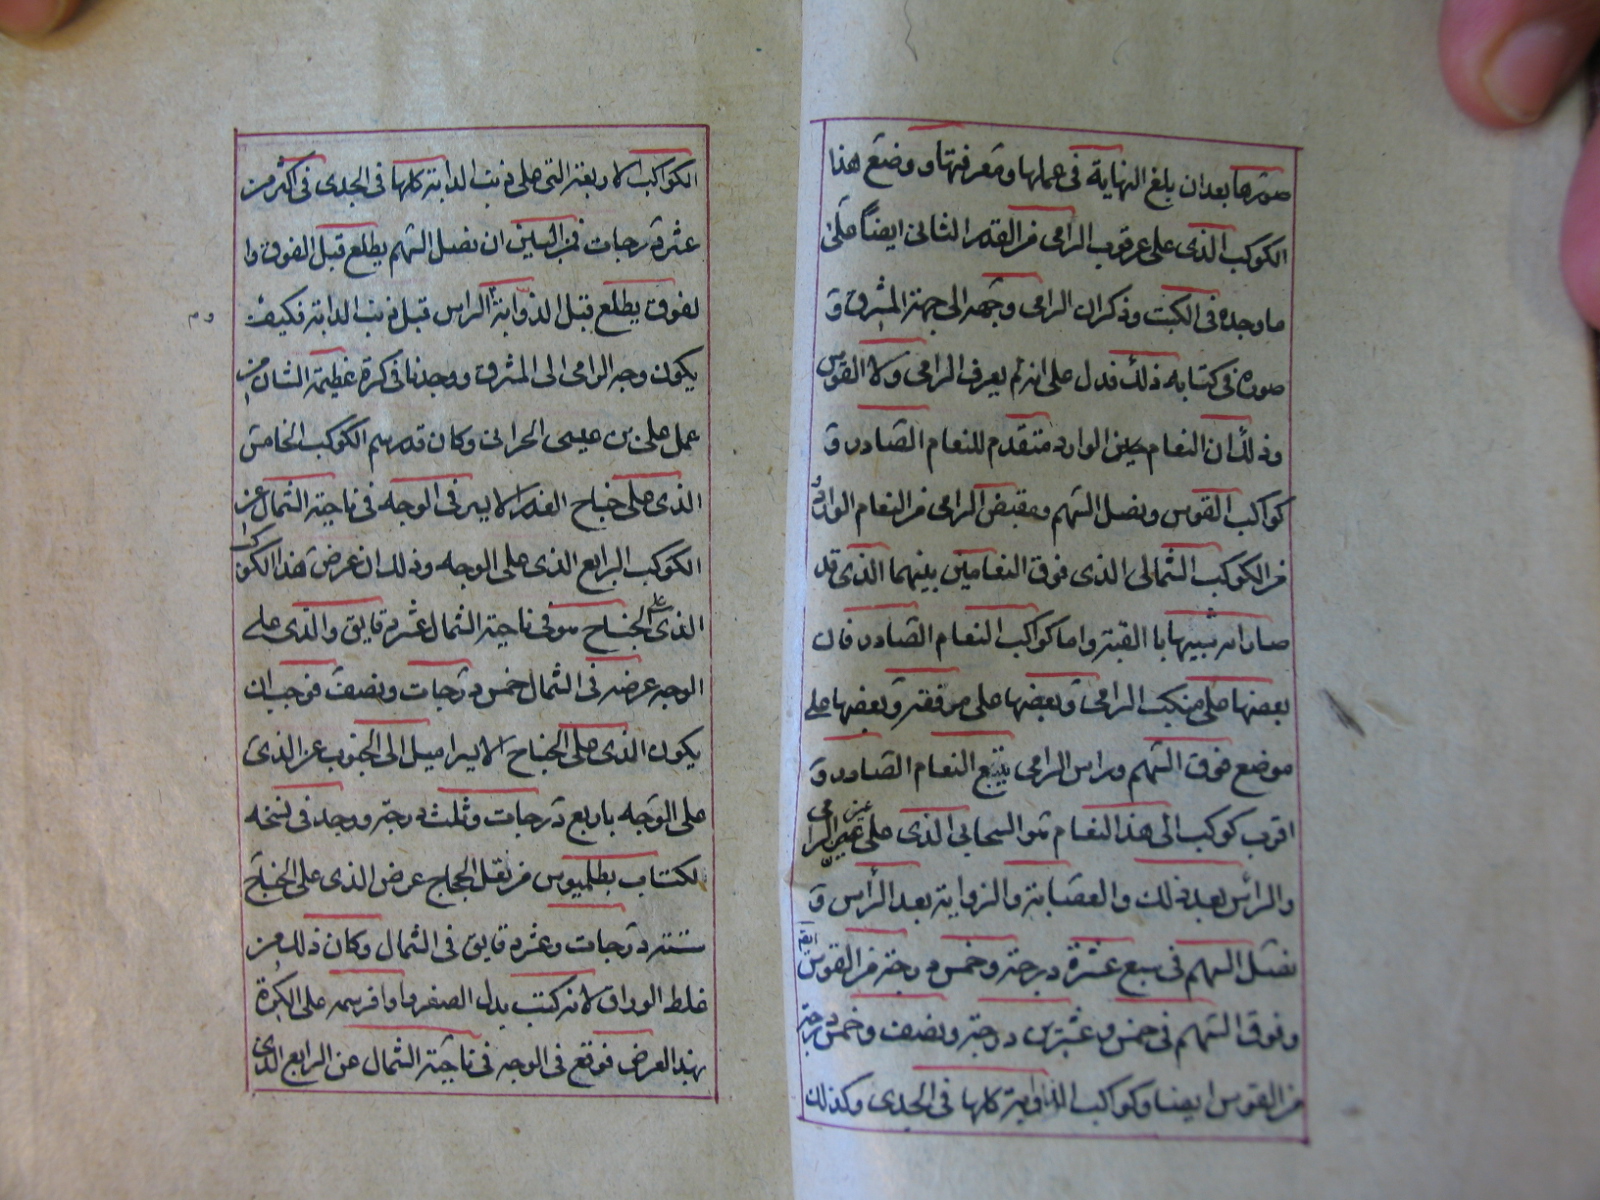 صورها بعد ان بلغ النهاية فى عملها ومعرفتها و وضع هذا
الكوكب الذى على عرقوب الرامى من القدر الثانى ايضاً على
ما وجده فى الكتب وذكر ان الرامى وجهه الى جهة المشرق و
صوره فى كتابه ذلك فدل على انه لم يعرف الرامى ولا القوس
وذلك ان النعام الوارد متقدم للنعام الصادر و
كواكب القوس ونصل السهم ومقبض الرامى من النعام الوارد
من الكوكب الشمالى الذى فوق النعامين بينهما الذى قد
تشبيها با القبة واما كواكب النعام الصادر فان
بعضها على منكب الرامى وبعضها على مرفقه وبعضها على
موضع فوق السهم وراس الرامى يتبع النعام الصادر و
اقرب كوكب الى هذا النعام هو السحابى الذى على عين الرامى
والراس بعد ذلك والعصابة والزوابة بعد الراس و
نصل السهم فى سبع عشرة درجة وخمس درجة من القوس
وفوق السهم فى خمس وعشرين درجة ونصف وخمس درجة
من القوس ايضا وكواكب الذوابة كلها فى الجدى وكذلك
الكواكب الاربعة التى على ذنب الدابة كلها فى الجدى فى اكثر من
عشرة درجات فمن البين ان نصل السهم يطلع قبل الفوق وا
لفوق يطلع قبل الذوابة الراس قبل ذنب الدابة فكيف
يكون وجه الرامى الى المشرق ووجدنا فى كرة عظيمة الشان من
عمل على بن عيسى الحرانى وكان قد رسم الكوكب الخامس
الذى على جناح العذراء الايسر فى الوجه فى ناحية الشمال عن
الكوكب الرابع الذى على الوجه وذلك ان عرض هذا الكوكب
الذى على الجناح هو فى ناحية الشمال عشرة دقايق والذى على
الوجه عرضه فى الشمال خمس درجات ونصف فوجب ان
يكون الذى على الجناح الايسر اميل الى الجنوب عن الذى
على الوجه باربع درجات وثلث درجة ووجد فى نسخه
لكتاب بطلميوس من نقل الحجاج عرض الذى على الجناح
ستة درجات وعشرة دقايق فى الشمال وكان ذلك من
غلط الوراق لانه كتب بدل الصفر واوا فرسمه على الكرة
بهذا العرض فوقع فى الوجه فى ناحية الشمال عن الرابع الذى